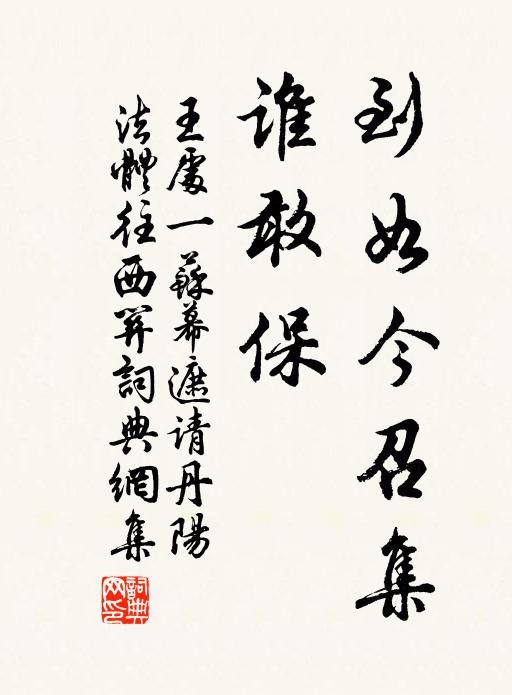 到如今召集
誰敢保
王處一蘇幕遮请丹陽
法體往西詞典網集
詞典網印